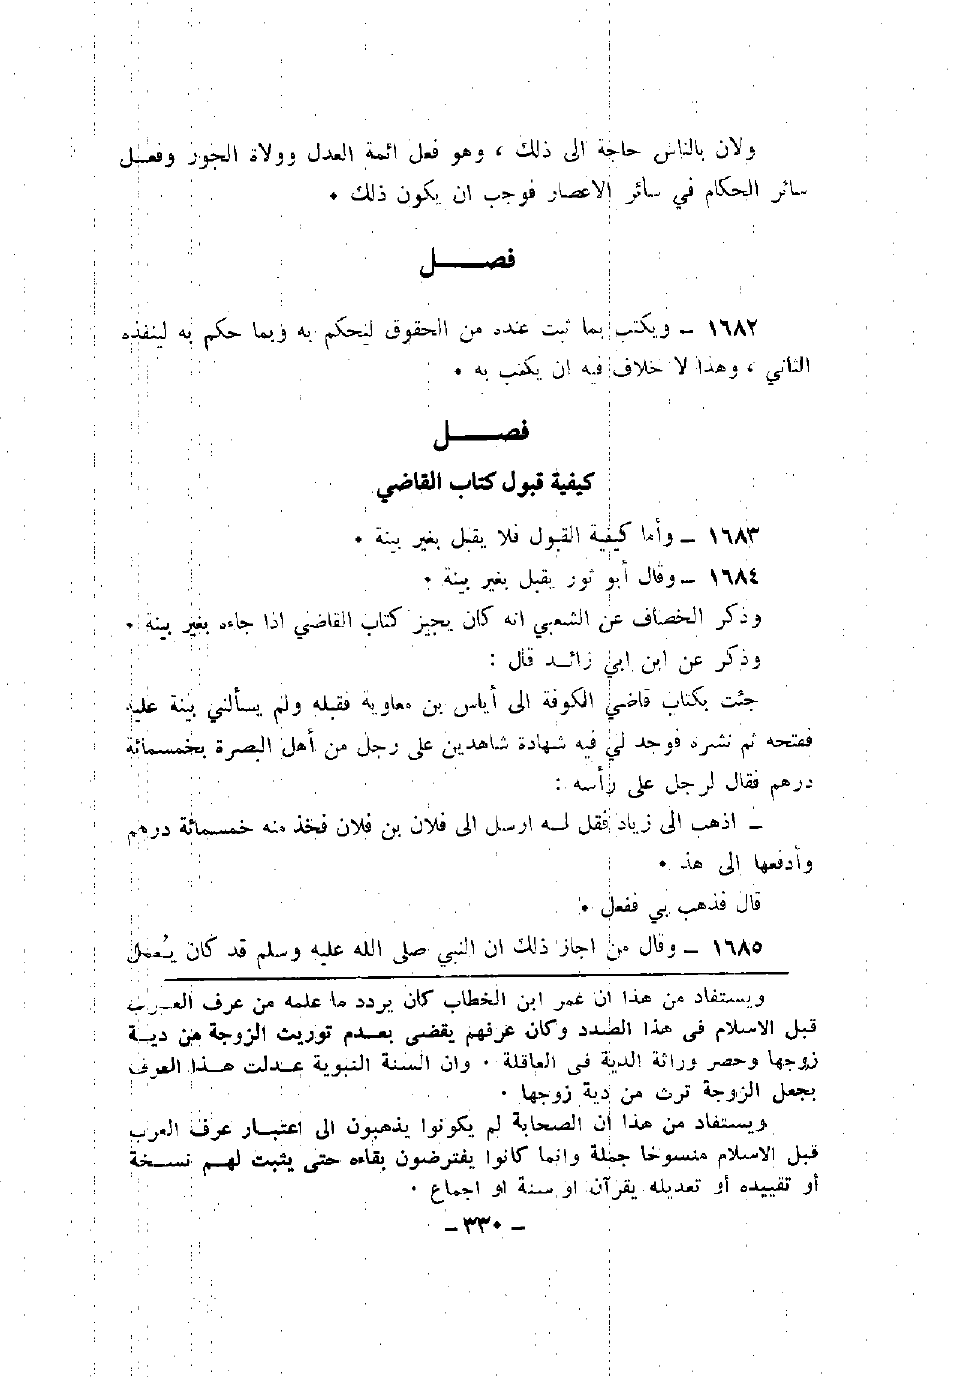 ولان بالناس حاجة الى ذلك ، وهو فعل ائمة العدل وولاة الجور وفعل
سائر الحكام في سائر الاعصار فوجب ان يكون ذلك •
فصل
١٦٨٢ – ويكتب بما ثبت عنده من الحقوق ليحكم به وبما حكم به لينفذه
الثاني ، وهذا لا خلاف فيه ان يكتب به •
فصل
كيفية قبول كتاب القاضي
١٦٨٣ – وأما كيفية القبول فلا يقبل بغير بينة •
١٦٨٤ – وقال أبو ثور يقبل بغير بينة •
وذكر الخصاف عن الشعبي انه كان يجيز كتاب القاضي اذا جاءه بغير بينة •
وذكر عن ابن ابي زائد قال :
جئت بكتاب قاضي الكوفة الى أياس بن معاوية فقبله ولم يسألني بينة عليه
ففتحه ثم نشره فوجد لي فيه شهادة شاهدين على رجل من أهل البصرة بخمسمائة
درهم فقال لرجل على رأسه :
– اذهب الى زياد فقل له ارسل الى فلان بن فلان فخذ منه خمسمائة درهم
وأدفعها الى هذ •
قال فذهب بي ففعل •
١٦٨٥ – وقال من اجاز ذلك ان النبي صلى الله عليه وسلم قد كان يُعمل
ويستفاد من هذا ان عمر ابن الخطاب كان يردد ما علمه من عرف العرب
قبل الاسلام فى هذا الصدد وكان عرفهم يقضى بعدم توريث الزوجة من دية
زوجها وحصر وراثة الدية فى العاقلة • وان السنة النبوية عدلت هذا العرف
بجعل الزوجة ترث من دية زوجها •
ويستفاد من هذا أن الصحابة لم يكونوا يذهبون الى اعتبار عرف العرب
قبل الاسلام منسوخا جملة وانما كانوا يفترضون بقاءه حتى يثبت لهم نسخة
أو تقييده أو تعديله بقرآن او سنة او اجماع •
– ٣٣٠ –